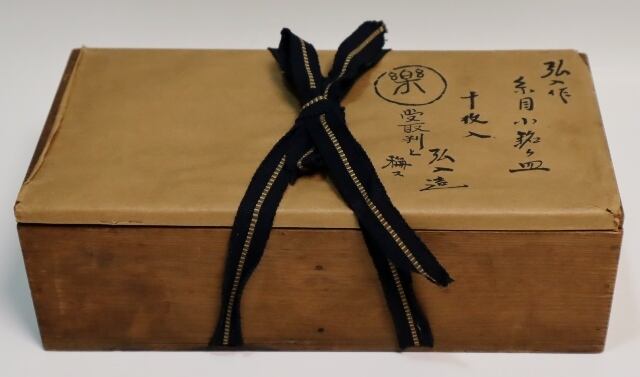 弘入作
糸目小銘々皿
十枚入
弘入造
樂
受取判と稱ス